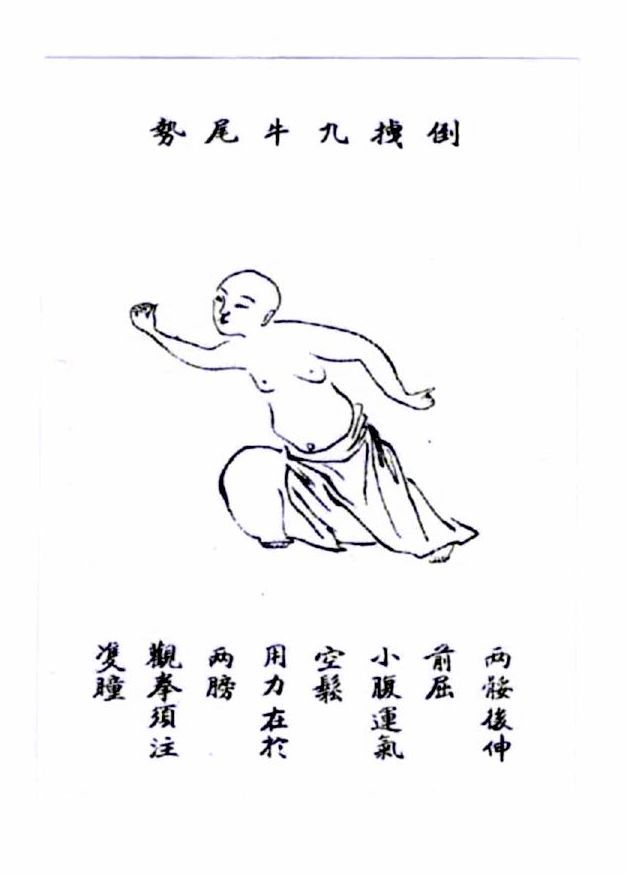 倒拽九牛尾勢
两骽後伸
前屈
小腹運氣
空鬆
用力在於
两膀
觀拳須注
雙瞳